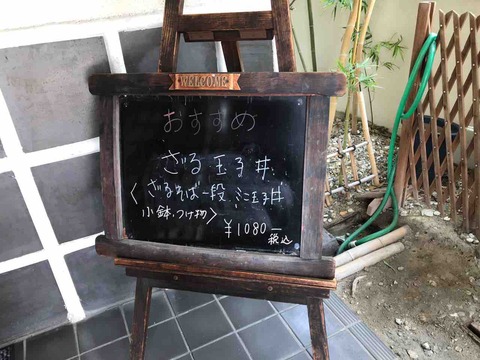 WELCOME
おすすめ
ざる玉子丼
〈ざるそば一段、ミニ玉子丼
小鉢、つけ物〉
¥1080ー
税込